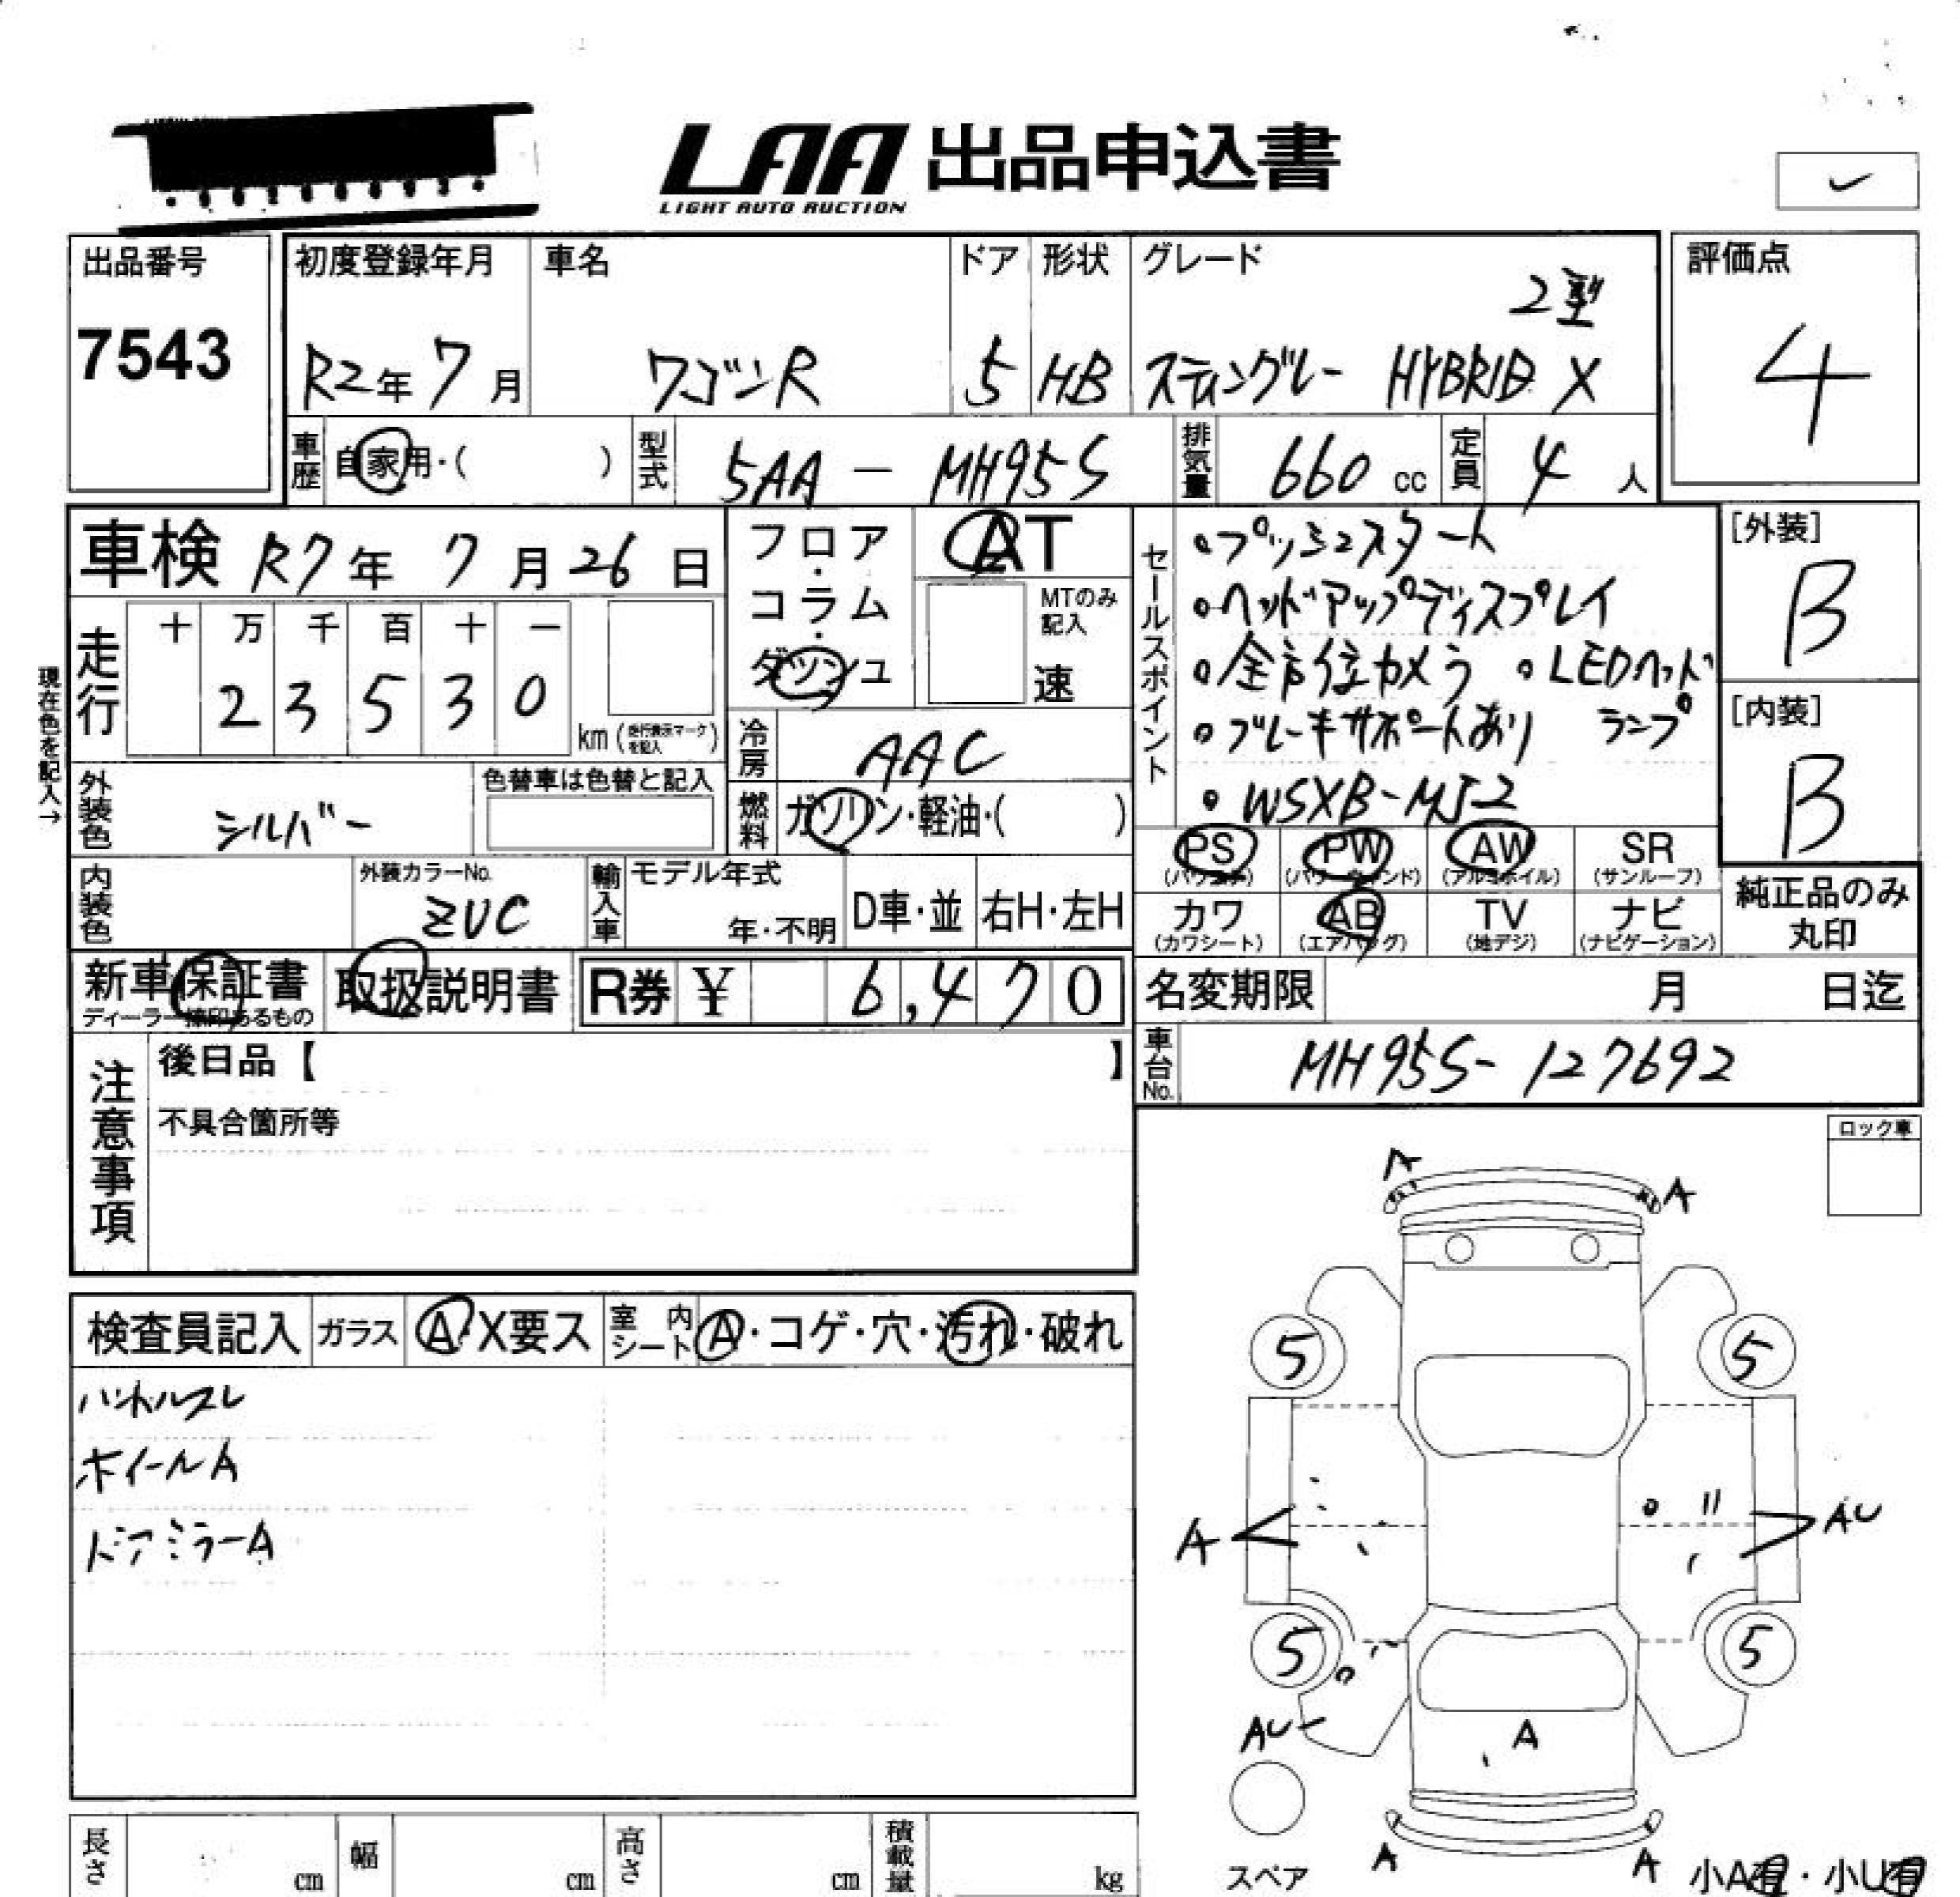 LAA 出品申込書
LIGHT AUTO AUCTION
出品番号
7543
初度登録年月
R2年 7月
車名
ワゴンR
ドア
5
形状
HB
グレード
2型
スティングレー HYBRID X
評価点
4
車歴 自家用・( )
型式 5AA - MH95S
排気量 660 cc
定員 4 人
車検 R7年 7月 26日
走行
十 万 千 百 十 一
2 3 5 3 0
km (走行表示マークを記入)
現在色を記入→
フロア・コラム・ダッシュ
AT
MTのみ記入
速
冷房 AAC
燃料 ガソリン・軽油・( )
外装色 シルバー
色替車は色替と記入
内装色
外装カラーNo.
ZVC
輸入車
モデル年式
年・不明
D車・並
右H・左H
セールスポイント
・プッシュスタート
・ヘッドアップディスプレイ
・全方位カメラ ・LEDヘッド
・ブレーキサポートあり ランプ
・WSXB-MJ2
[外装]
B
[内装]
B
PS (パワステ)
PW (パワーウィンド)
AW (アルミホイル)
SR (サンルーフ)
カワ (カワシート)
AB (エアバッグ)
TV (地デジ)
ナビ (ナビゲーション)
純正品のみ
丸印
新車保証書
ディーラー捺印あるもの
取扱説明書
R券 ¥ 6,470
名変期限 月 日迄
車台No. MH95S-127692
注意事項
後日品【 】
不具合箇所等
ロック車
検査員記入
ガラス A・X要ス
室内シート A・コゲ・穴・汚れ・破れ
ハンドルスレ
ホイールA
ドアミラーA
A
A
5
5
A
AU
5
5
AU
A
A
A
スペア
小A有・小U有
長さ cm
幅 cm
高さ cm
積載量 kg